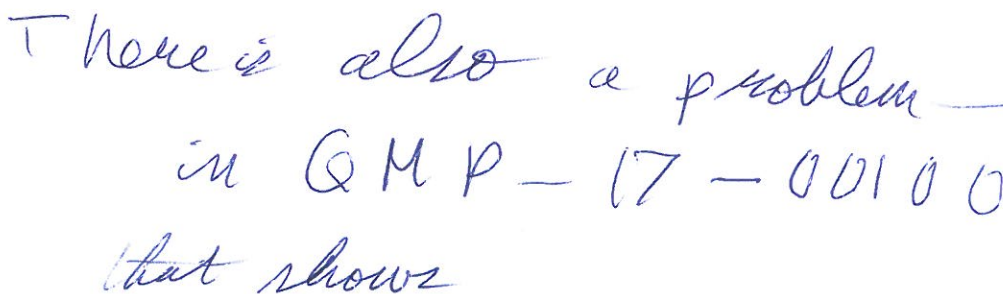 There is also a problem
in QMP-17-00100
that shows